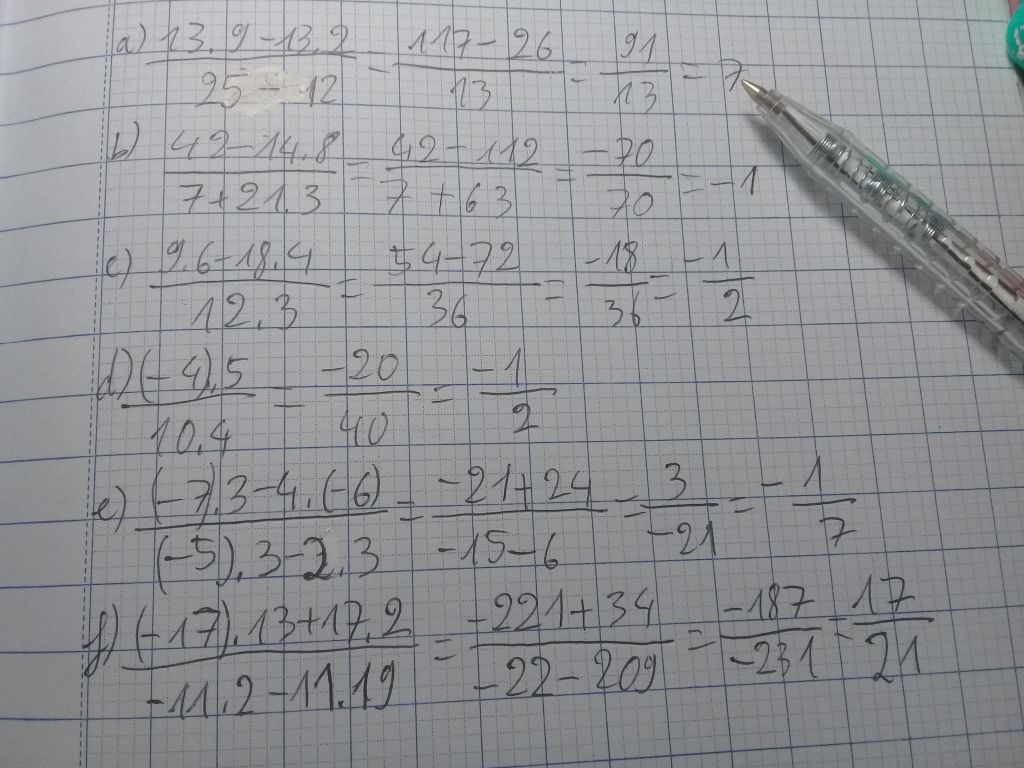 a) (13.9-13.2)/(25-12) = (117-26)/13 = 91/13 = 7
b) (42-14.8)/(7+21.3) = (42-112)/(7+63) = -70/70 = -1
c) (9.6-18.4)/(12.3) = (54-72)/36 = -18/36 = -1/2
d) (-4).5/(10.4) = -20/40 = -1/2
e) ((-7).3-4.(-6))/((-5).3-2.3) = (-21+24)/(-15-6) = 3/-21 = -1/7
f) ((-17).13+17.2)/(-11.2-11.19) = (-221+34)/(-22-209) = -187/-231 = 17/21